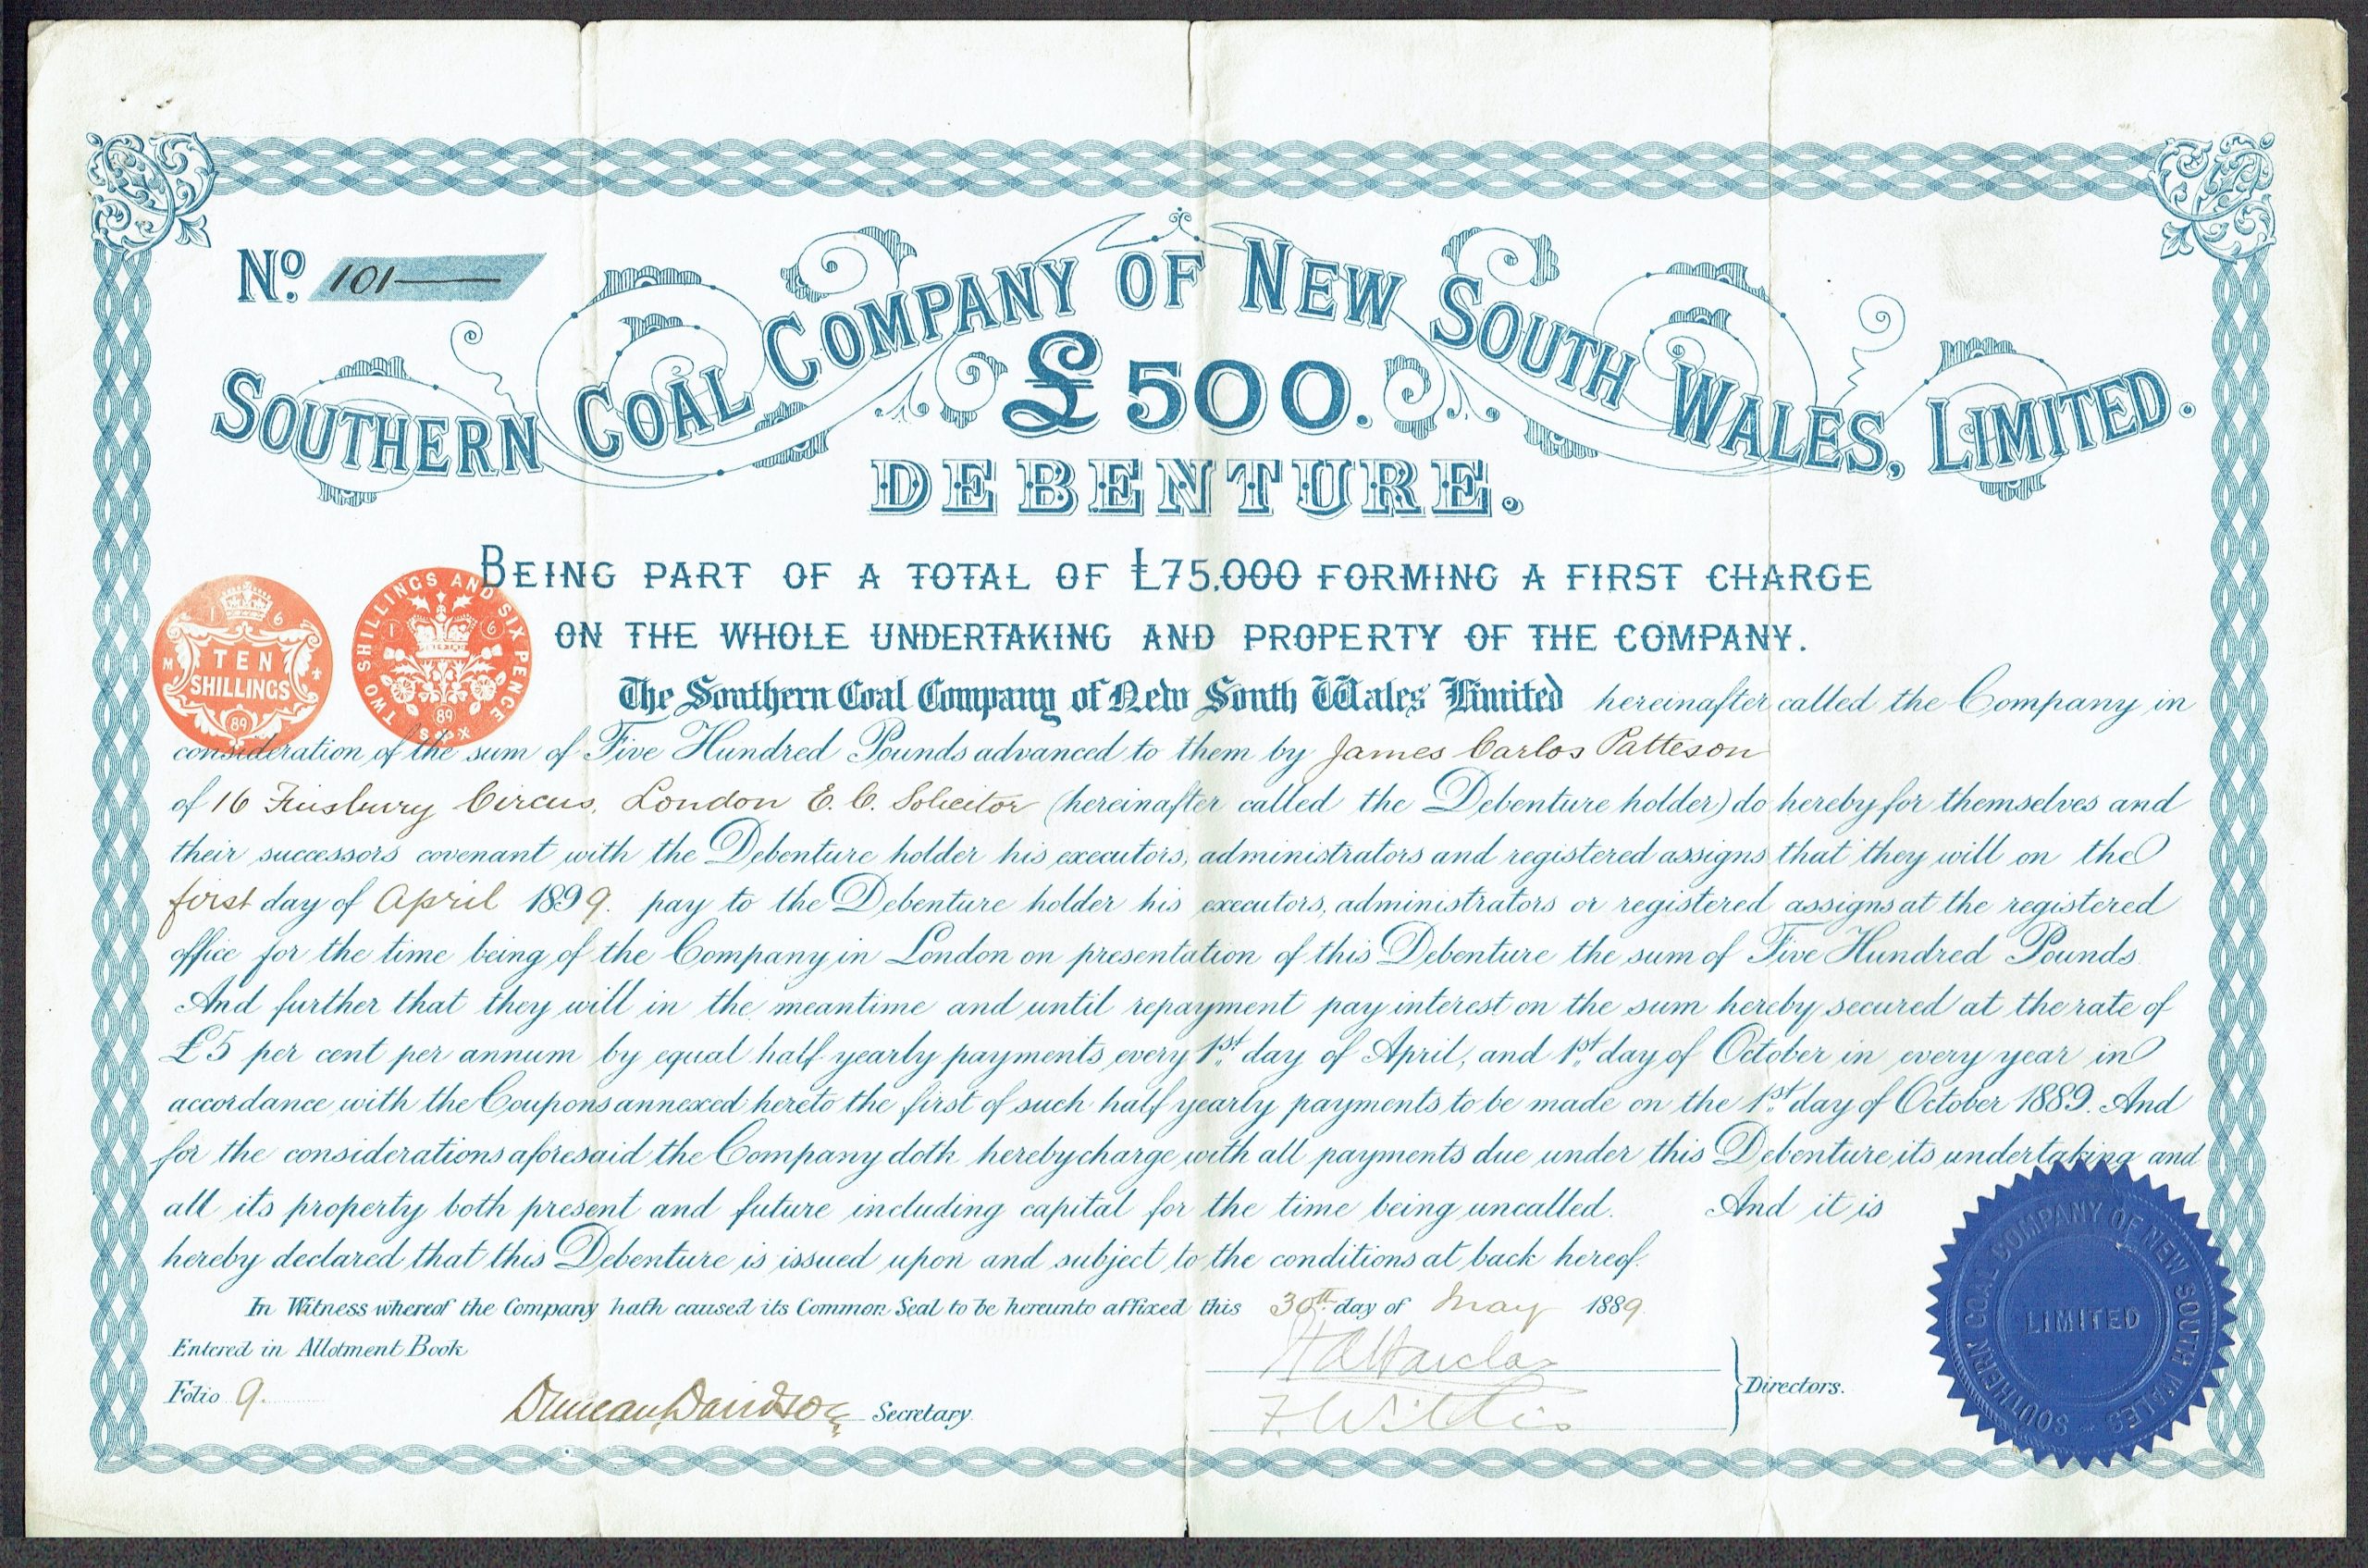 No. 101
SOUTHERN COAL COMPANY OF NEW SOUTH WALES, LIMITED.
£500.
DEBENTURE.
BEING PART OF A TOTAL OF £75,000 FORMING A FIRST CHARGE
ON THE WHOLE UNDERTAKING AND PROPERTY OF THE COMPANY.
1 6
TEN
SHILLINGS
89
TWO SHILLINGS AND SIX PENCE
1 6
89
The Southern Coal Company of New South Wales Limited hereinafter called the Company in
consideration of the sum of Five Hundred Pounds advanced to them by James Carlos Patteson
of 16 Finsbury Circus, London E. C. Solicitor (hereinafter called the Debenture holder) do hereby for themselves and
their successors covenant with the Debenture holder his executors, administrators and registered assigns that they will on the
first day of April 1899. pay to the Debenture holder his executors, administrators or registered assigns at the registered
office for the time being of the Company in London on presentation of this Debenture the sum of Five Hundred Pounds
And further that they will in the meantime and until repayment pay interest on the sum hereby secured at the rate of
£5 per cent per annum by equal half yearly payments every 1st day of April, and 1st day of October in every year in
accordance with the Coupons annexed hereto the first of such half yearly payments to be made on the 1st day of October 1889. And
for the considerations aforesaid the Company doth hereby charge with all payments due under this Debenture its undertaking and
all its property both present and future including capital for the time being uncalled. And it is
hereby declared that this Debenture is issued upon and subject to the conditions at back hereof.
In Witness whereof the Company hath caused its Common Seal to be hereunto affixed this 30th day of May 1889.
Entered in Allotment Book
Folio 9.
Duncan Davidson Secretary
Directors.
SOUTHERN COAL COMPANY OF NEW SOUTH WALES
LIMITED